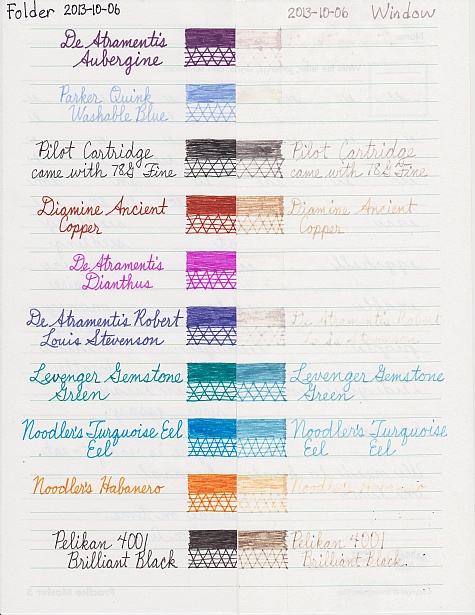 Folder 2013-10-06 2013-10-06 Window
De Atramentis
Aubergine
Parker Quink
Washable Blue
Pilot Cartridge Pilot Cartridge
came with 78G Fine came with 78G Fine
Diamine Ancient Diamine Ancient
Copper Copper
De Atramentis
Dianthus
De Atramentis Robert De Atramentis Robert
Louis Stevenson
Levenger Gemstone Levenger Gemstone
Green Green
Noodler's Turquoise Eel Noodler's Turquoise
Eel Eel Eel
Noodler's Habanero Noodler's Habanero
Pelikan 4001 Pelikan 4001
Brilliant Black Brilliant Black
Practice Master 3